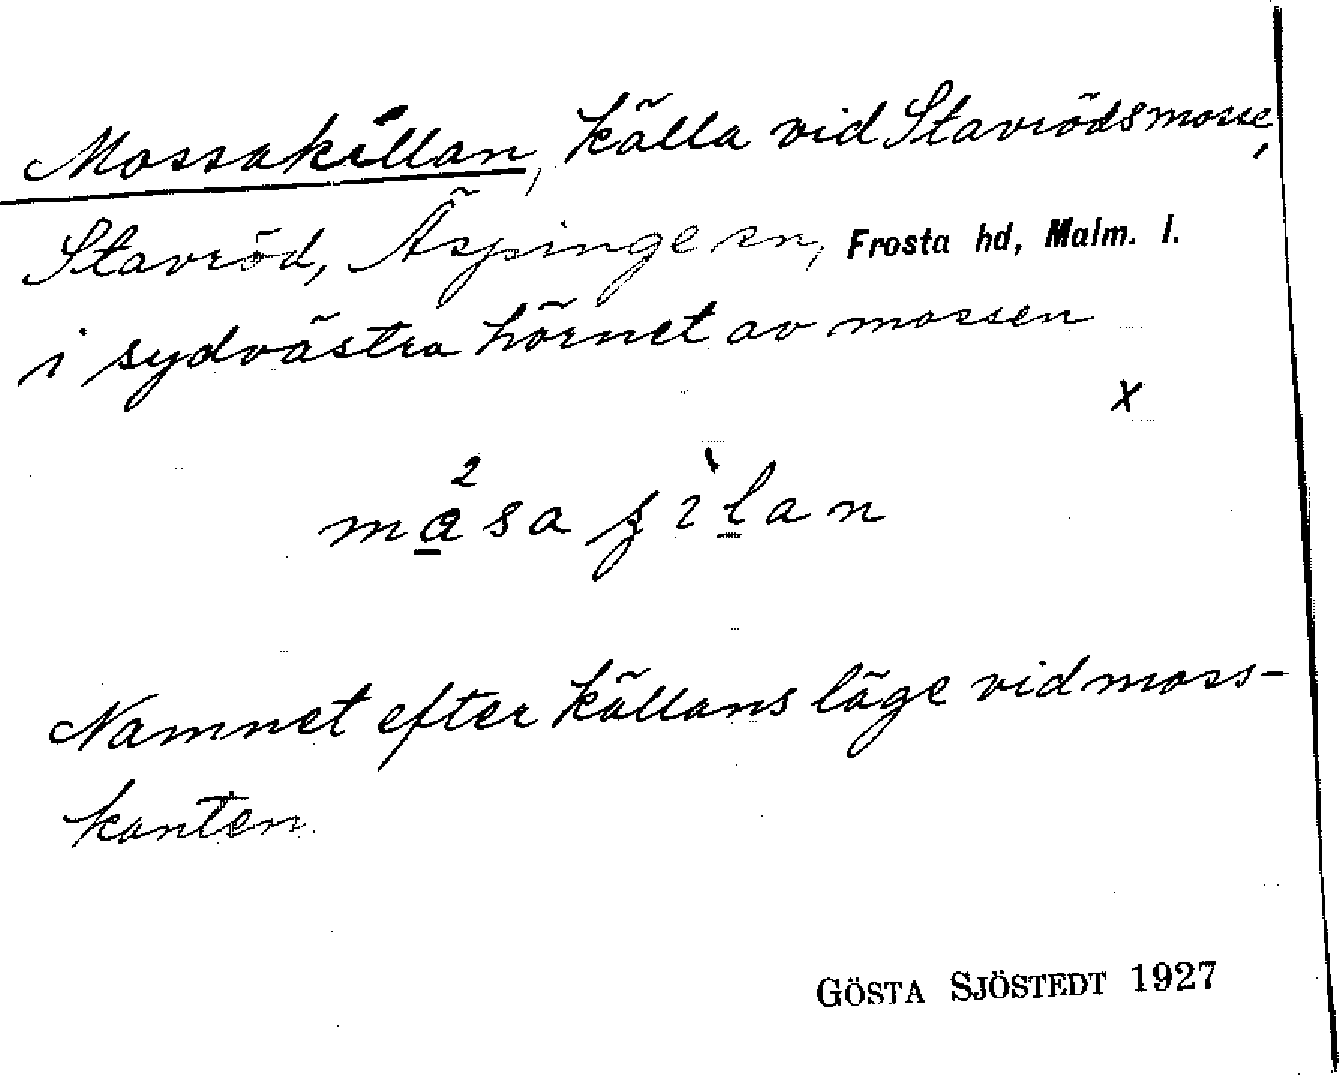 Mossakillan, källa vid Stavrödsmosse,
Stavröd, Äspinge sn, Frosta hd, Malm. l.
i sydvästra hörnet av mossen
x
Namnet efter källans läge vid moss-
kanten.
GÖSTA SJÖSTEDT 1927